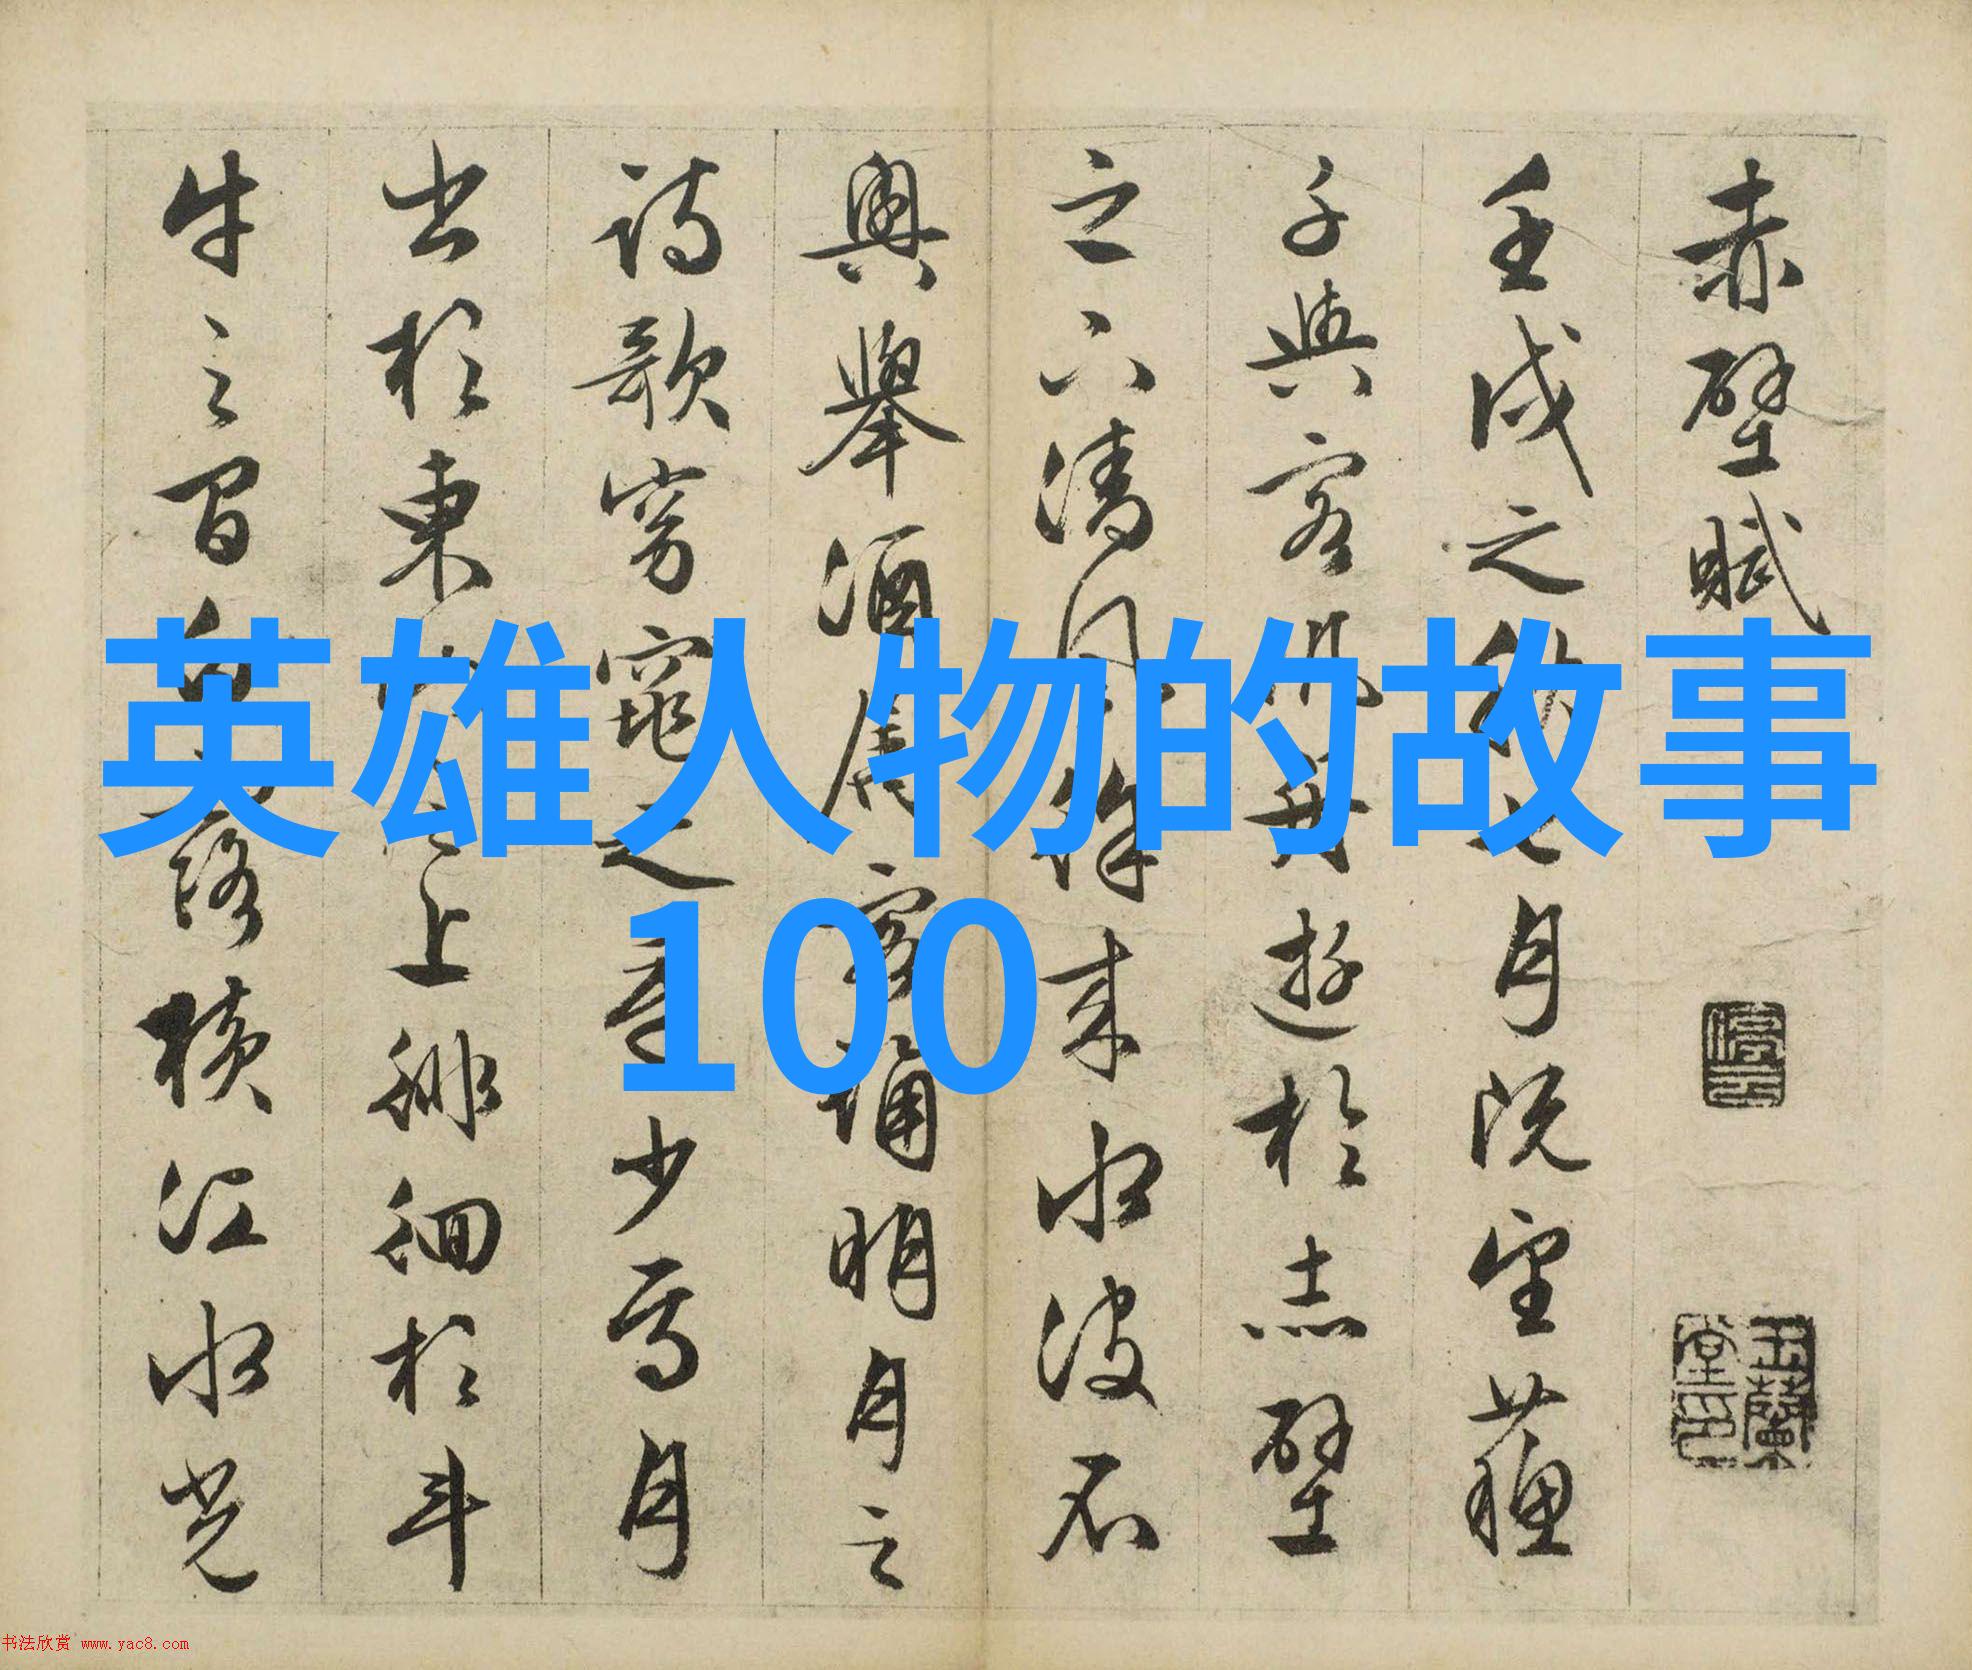 英雄人物的故事
100
赤壁賦
壬戌之秋七月既望蘇
子與客泛舟遊於赤壁
之下清風徐來水波不
興舉酒屬客誦明月之
詩歌窈窕之章少焉月
出於東山之上徘徊於斗
牛之間白露橫江水光
停雲
玉蘭堂印
书法欣赏 www.yac8.com